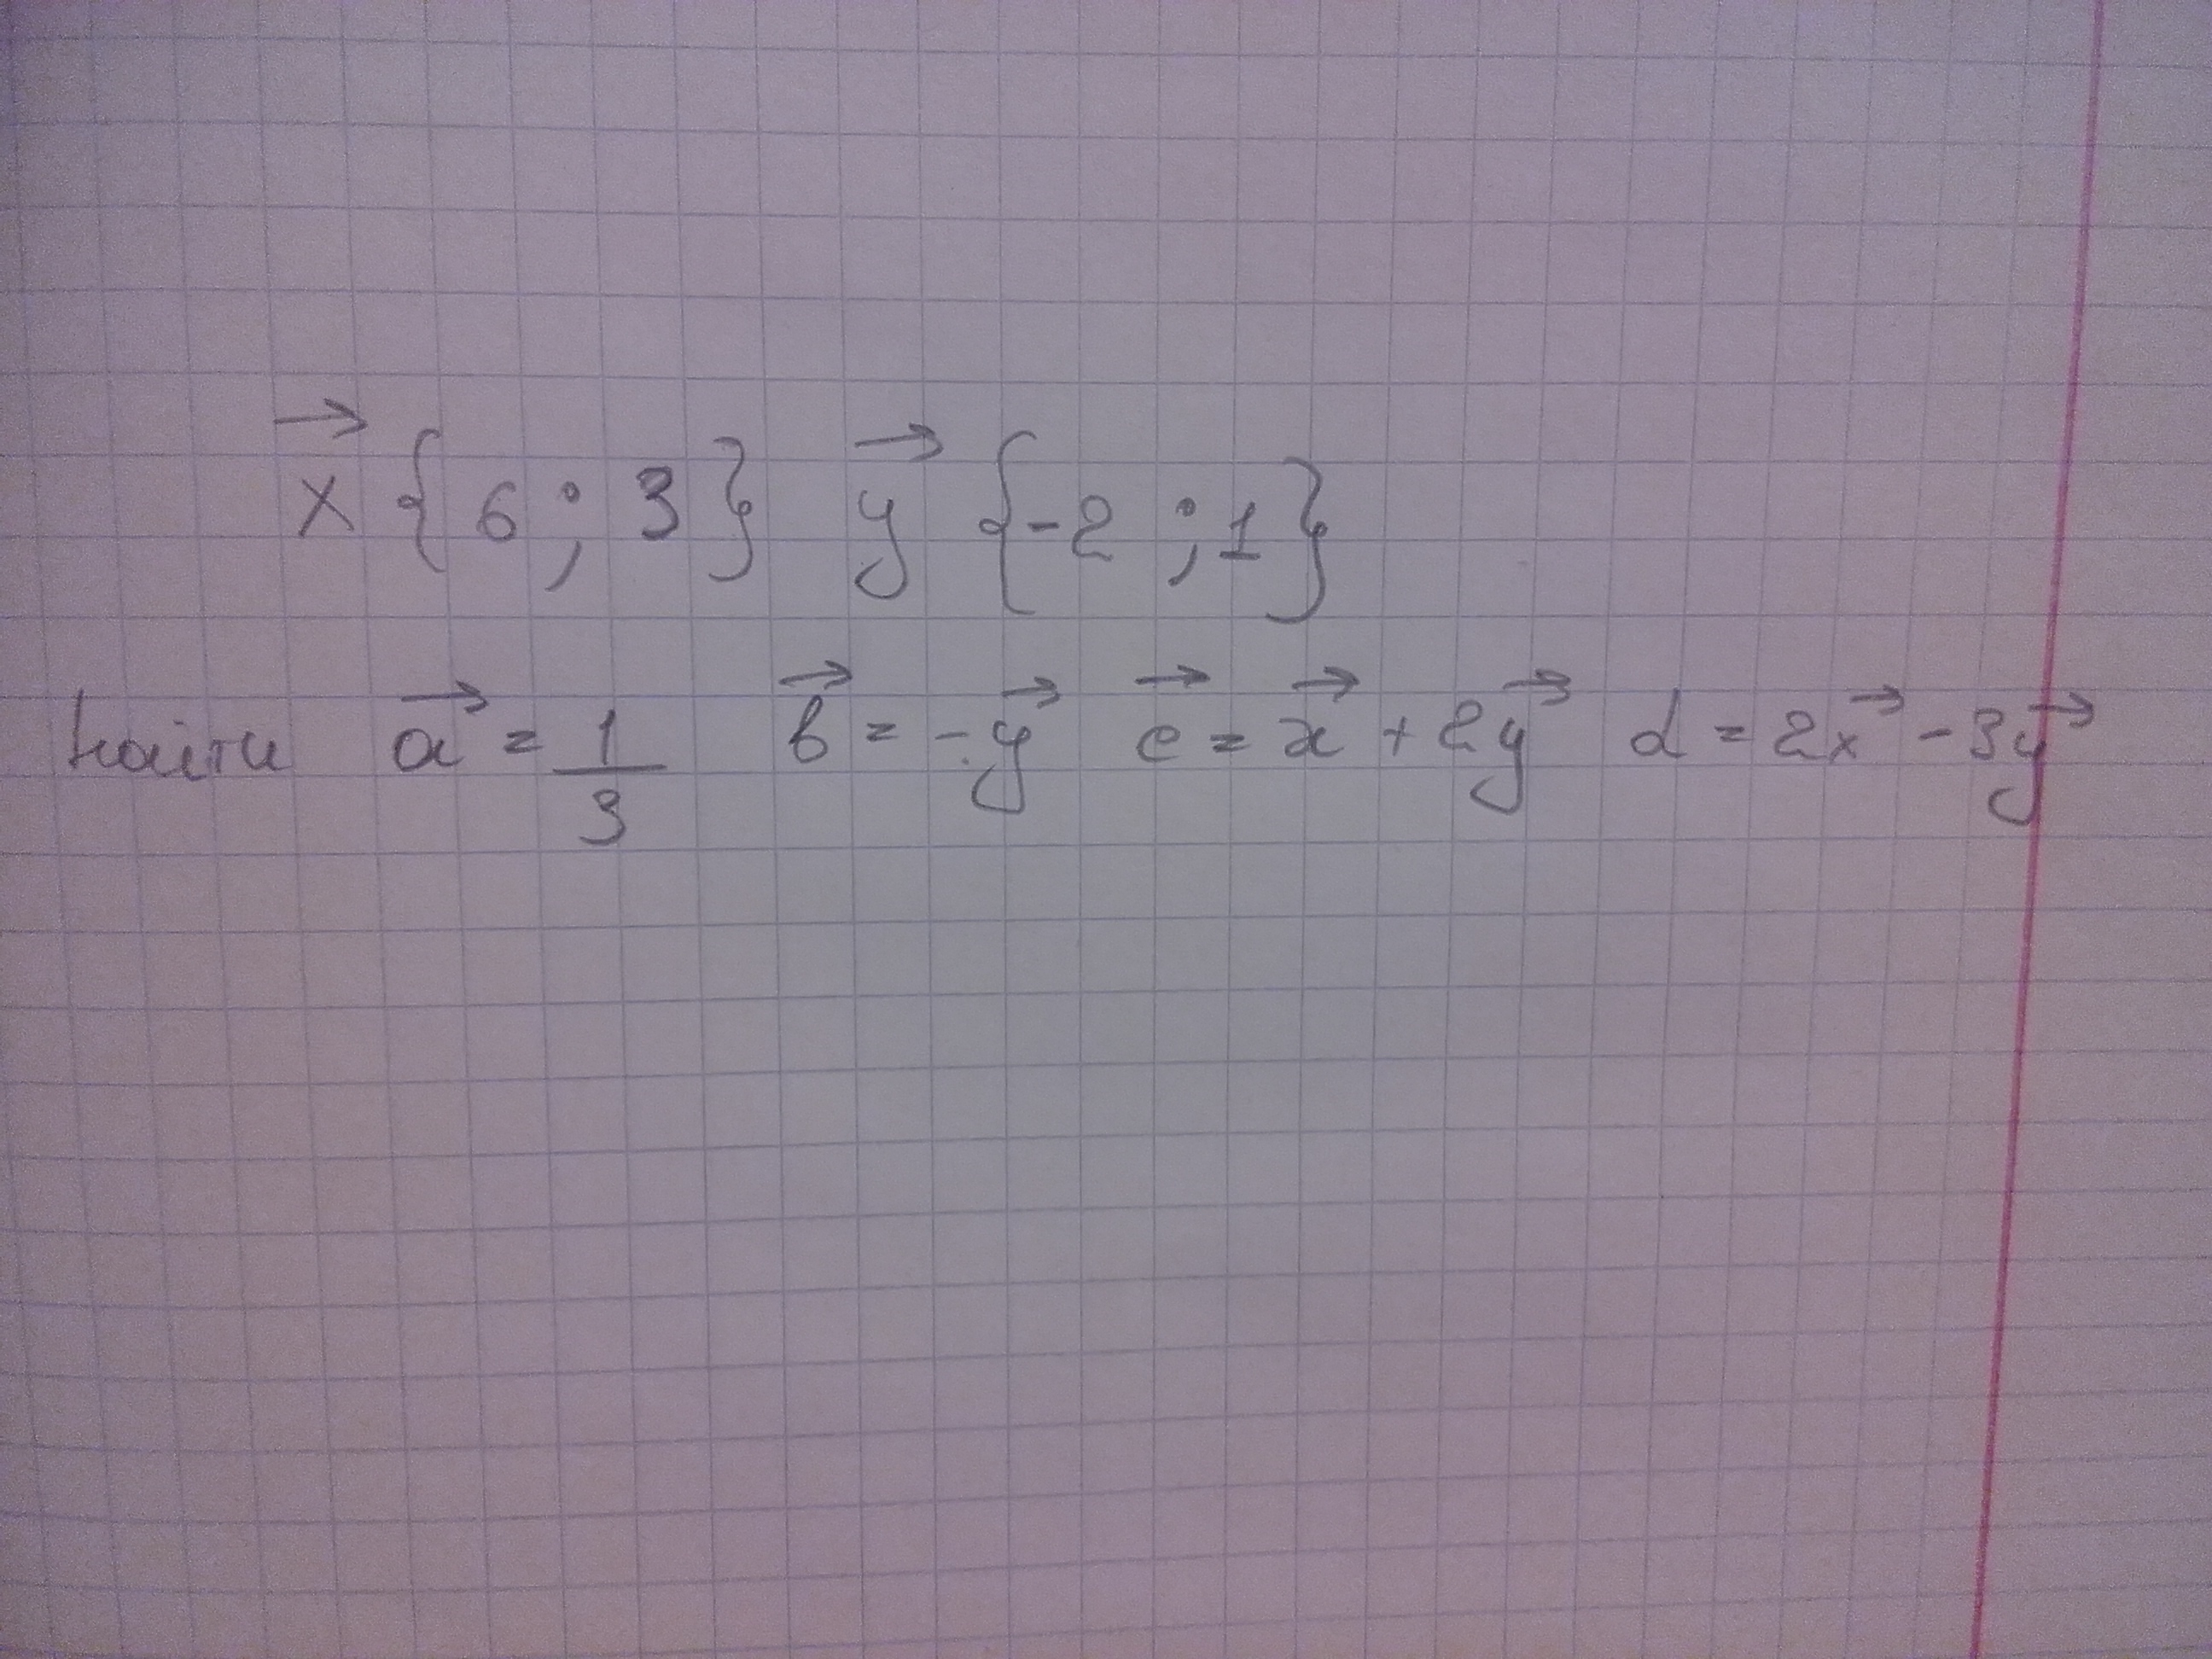 x⃗ {6; 3} y⃗ {-2; 1}
найти a⃗ = 1/3 b⃗ = -y⃗ c⃗ = x⃗ + 2y⃗ d = 2x⃗ - 3y⃗